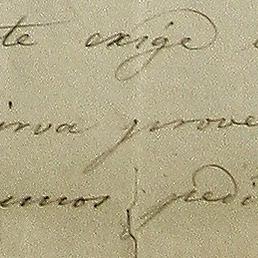 te exige
irva prove
umos pedi